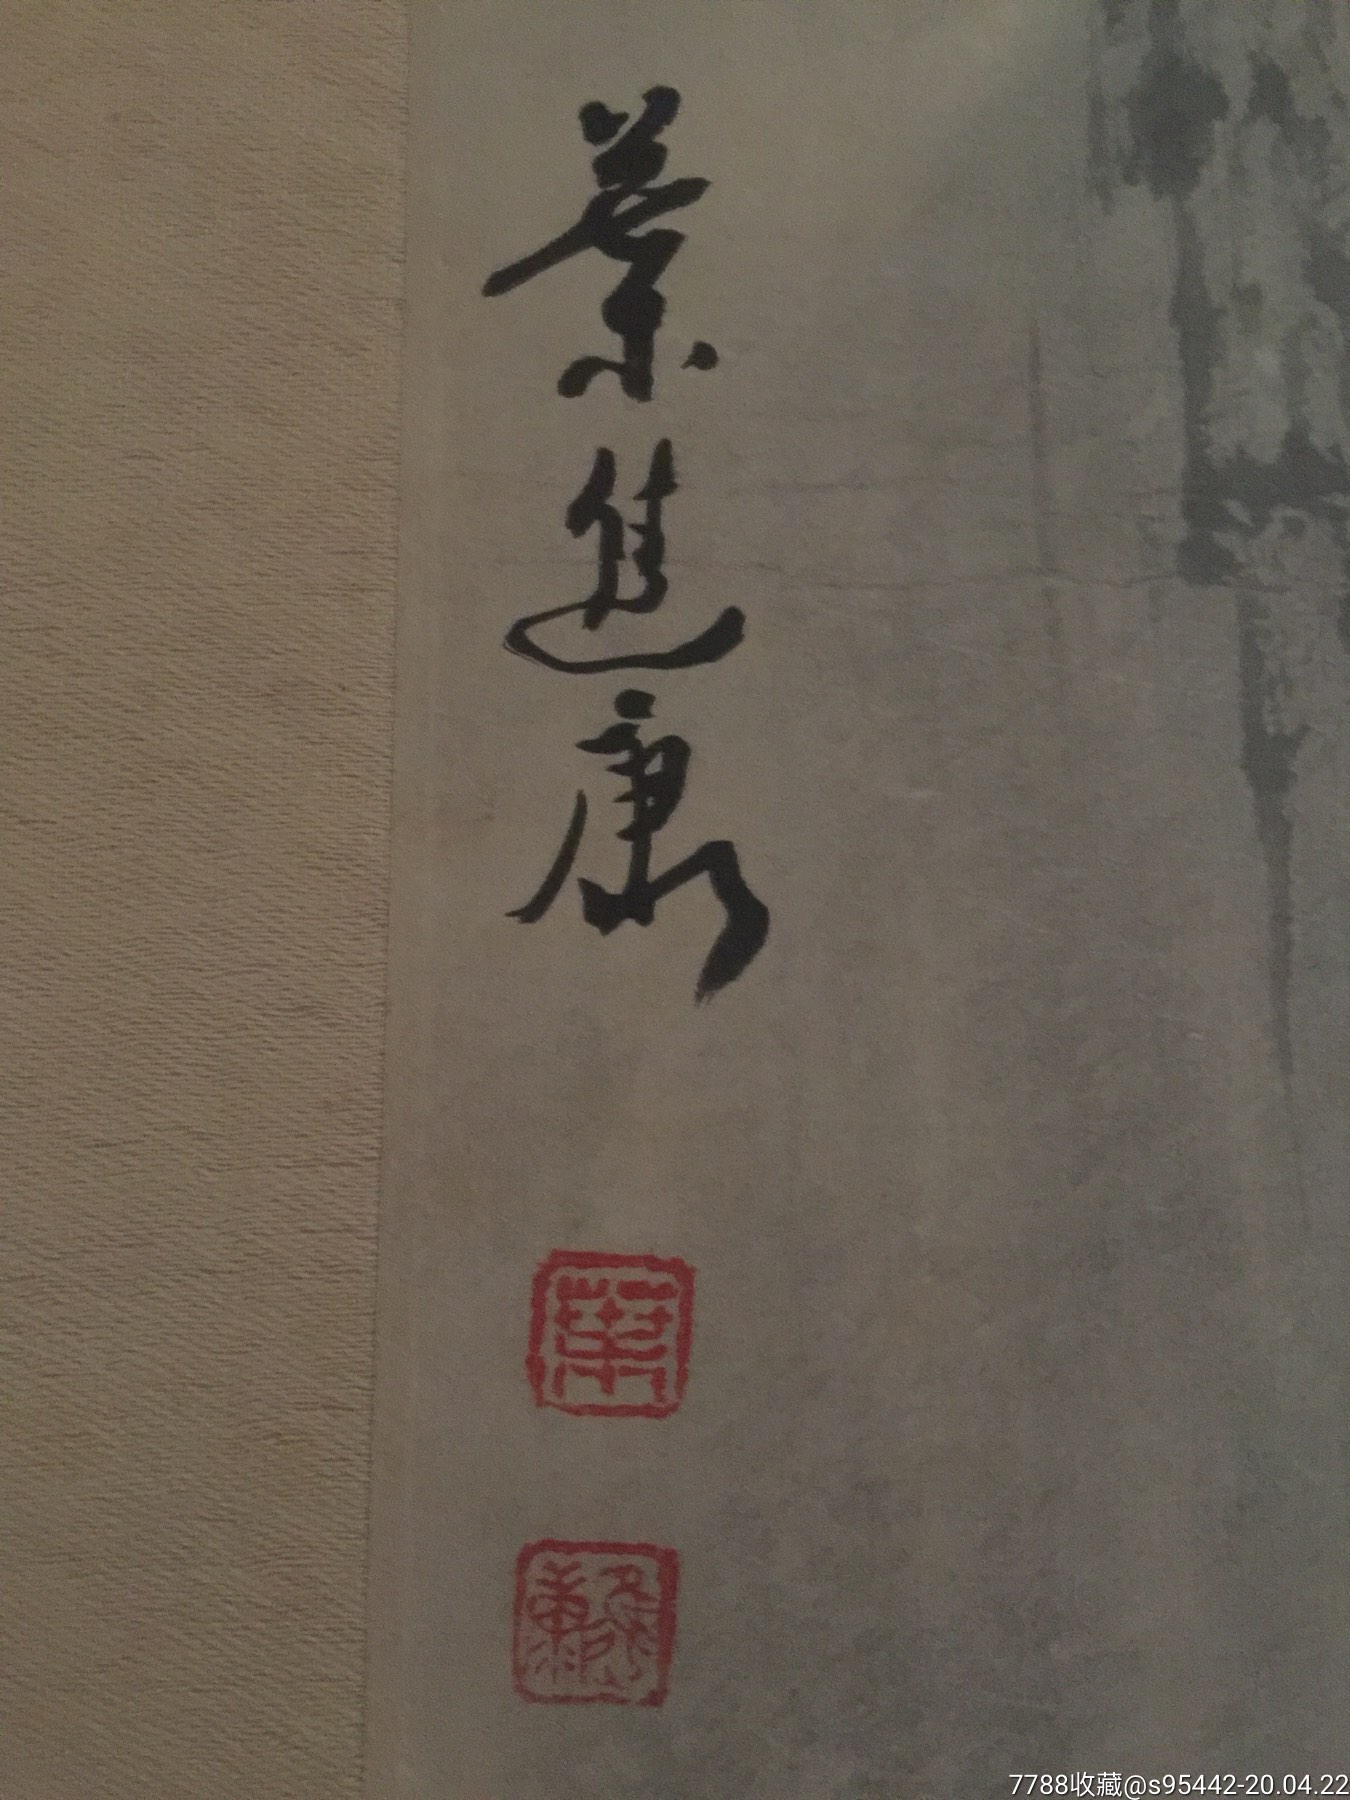 葉進康
葉
進康
7788收藏@s95442-20.04.22